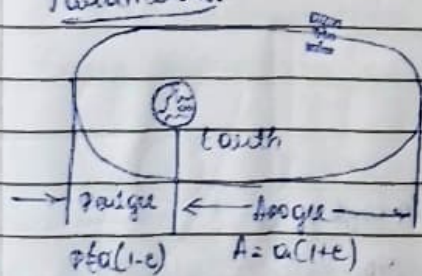 Earth
Perigee
Apogee
P = a(1-e) A = a(1+e)